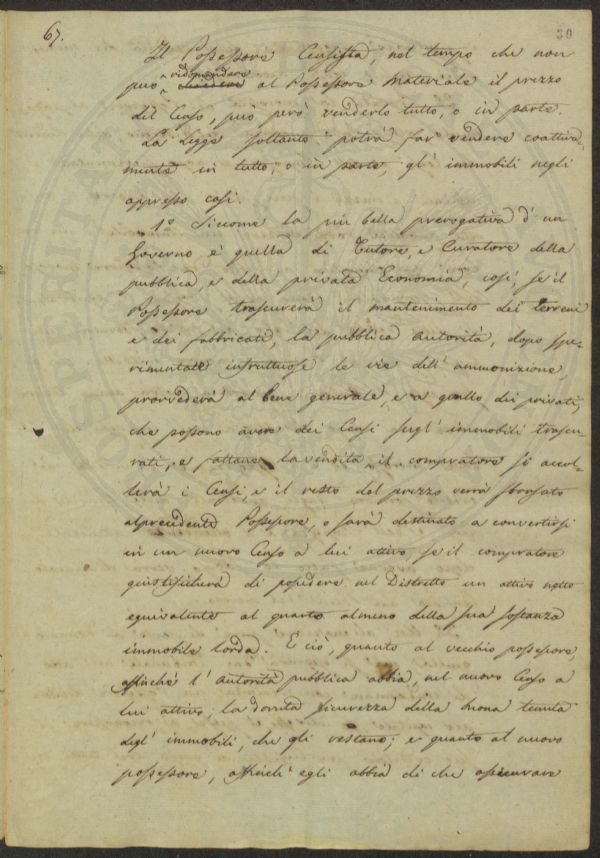 67.
30
Il Possessore Censista, nel tempo che non
può ridomandare al Possessore Materiale il prezzo
del Censo, può però venderlo tutto, o in parte.
La Legge soltanto potrà far vendere coattiva-
mente in tutto, o in parte, gl' immobili negli
appresso casi.
1.° Siccome la più bella prerogativa d' un
Governo è quella di Tutore, e Curatore della
pubblica, e della privata Economia, così, se il
Possessore trascurerà il mantenimento dei terreni
e dei fabbricati, la pubblica autorità, dopo spe-
rimentate infruttuose le vie dell' ammonizione,
provvederà al bene generale, e a quello dei privati,
che possono avere dei Censi sugl' immobili trascu-
rati, e fattane la vendita, il compratore si accol-
lerà i Censi, e il resto del prezzo verrà sborsato
al precedente Possessore, o sarà destinato a convertirsi
in un nuovo Censo a lui attivo se il compratore
giustificherà di possedere nel Distretto un attivo netto
equivalente al quarto almeno della sua sostanza
immobile lorda. E ciò, quanto al vecchio possessore,
affinché l' autorità pubblica abbia, nel nuovo Censo a
lui attivo, la dovuta sicurezza della buona tenuta
degl' immobili, che gli restano; e quanto al nuovo
possessore, affinché egli abbia di che assicurare